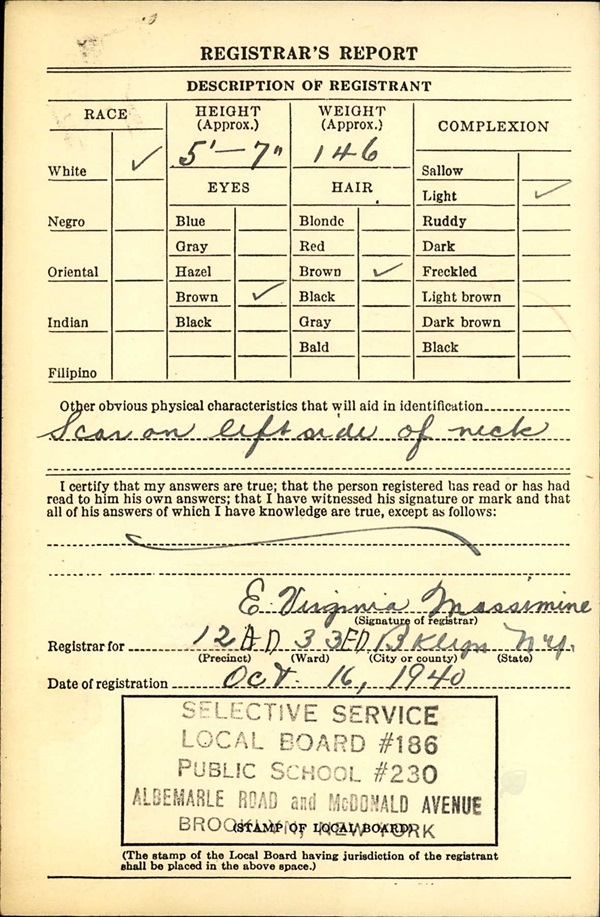 REGISTRAR'S REPORT
DESCRIPTION OF REGISTRANT
RACE
HEIGHT (Approx.)
WEIGHT (Approx.)
COMPLEXION
5'—7"
146
White ✓
Sallow
EYES
HAIR
Light ✓
Negro
Blue
Blonde
Ruddy
Gray
Red
Dark
Oriental
Hazel
Brown ✓
Freckled
Brown ✓
Black
Light brown
Indian
Black
Gray
Dark brown
Bald
Black
Filipino
Other obvious physical characteristics that will aid in identification
Scar on left side of neck
I certify that my answers are true; that the person registered has read or has had
read to him his own answers; that I have witnessed his signature or mark and that
all of his answers of which I have knowledge are true, except as follows:
E Virginia Massimine
(Signature of registrar)
Registrar for 12 AD 33 ED Bklyn N.Y.
(Precinct) (Ward) (City or county) (State)
Date of registration Oct. 16, 1940
SELECTIVE SERVICE
LOCAL BOARD #186
PUBLIC SCHOOL #230
ALBEMARLE ROAD and McDONALD AVENUE
BROOKLYN, NEW YORK
(STAMP OF LOCAL BOARD)
(The stamp of the Local Board having jurisdiction of the registrant
shall be placed in the above space.)